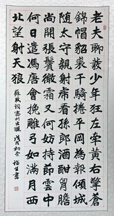 老夫聊發少年狂左牽黃右擎蒼
錦帽貂裘千騎卷平岡為報傾城
隨太守親射虎看孫郎酒酣胸膽
尚開張鬢微霜又何妨持節雲中
何日遣馮唐會挽雕弓如滿月西
北望射天狼
蘇軾詞密州出獵